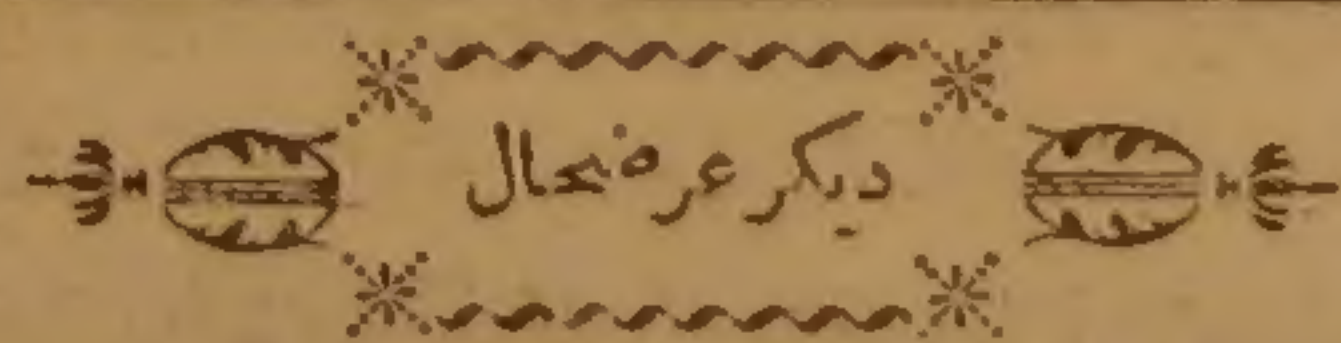 دیکر عرضحال